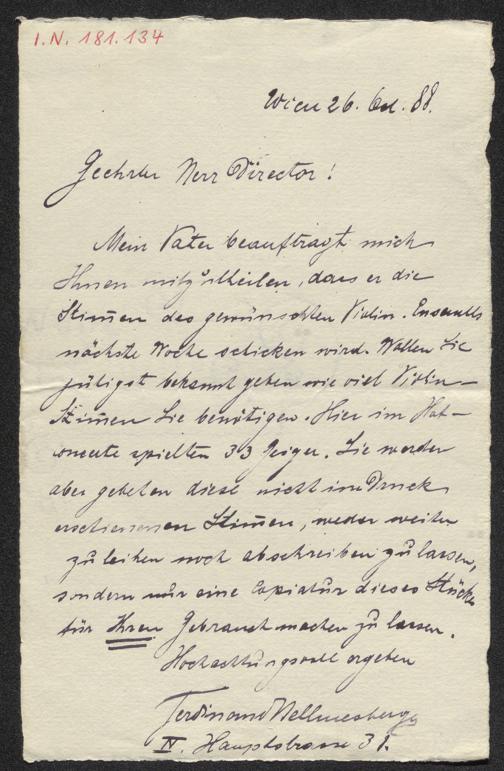 I.N. 181.134
Wien 26. Oct. 88.
Geehrter Herr Director!
Mein Vater beauftragt mich
Ihnen mitzutheilen, dass er die
Stimmen des gewünschten Violin-Ensembls
nächste Woche schicken wird. Wollen Sie
gütigst bekannt geben wie viel Violin-
Stimmen Sie benötigen. Hier im Hof-
concerte spielten 33 Geiger. Sie werden
aber gebeten diese nicht im Druck
erschienenen Stimmen, weder weiter
zu leihen noch abschreiben zu lassen,
sondern nur eine Copiatur dieses Stücks
für Ihren Gebrauch machen zu lassen.
Hochachtungsvoll ergeben
Ferdinand Hellmesberger
IV. Hauptstrasse 31.